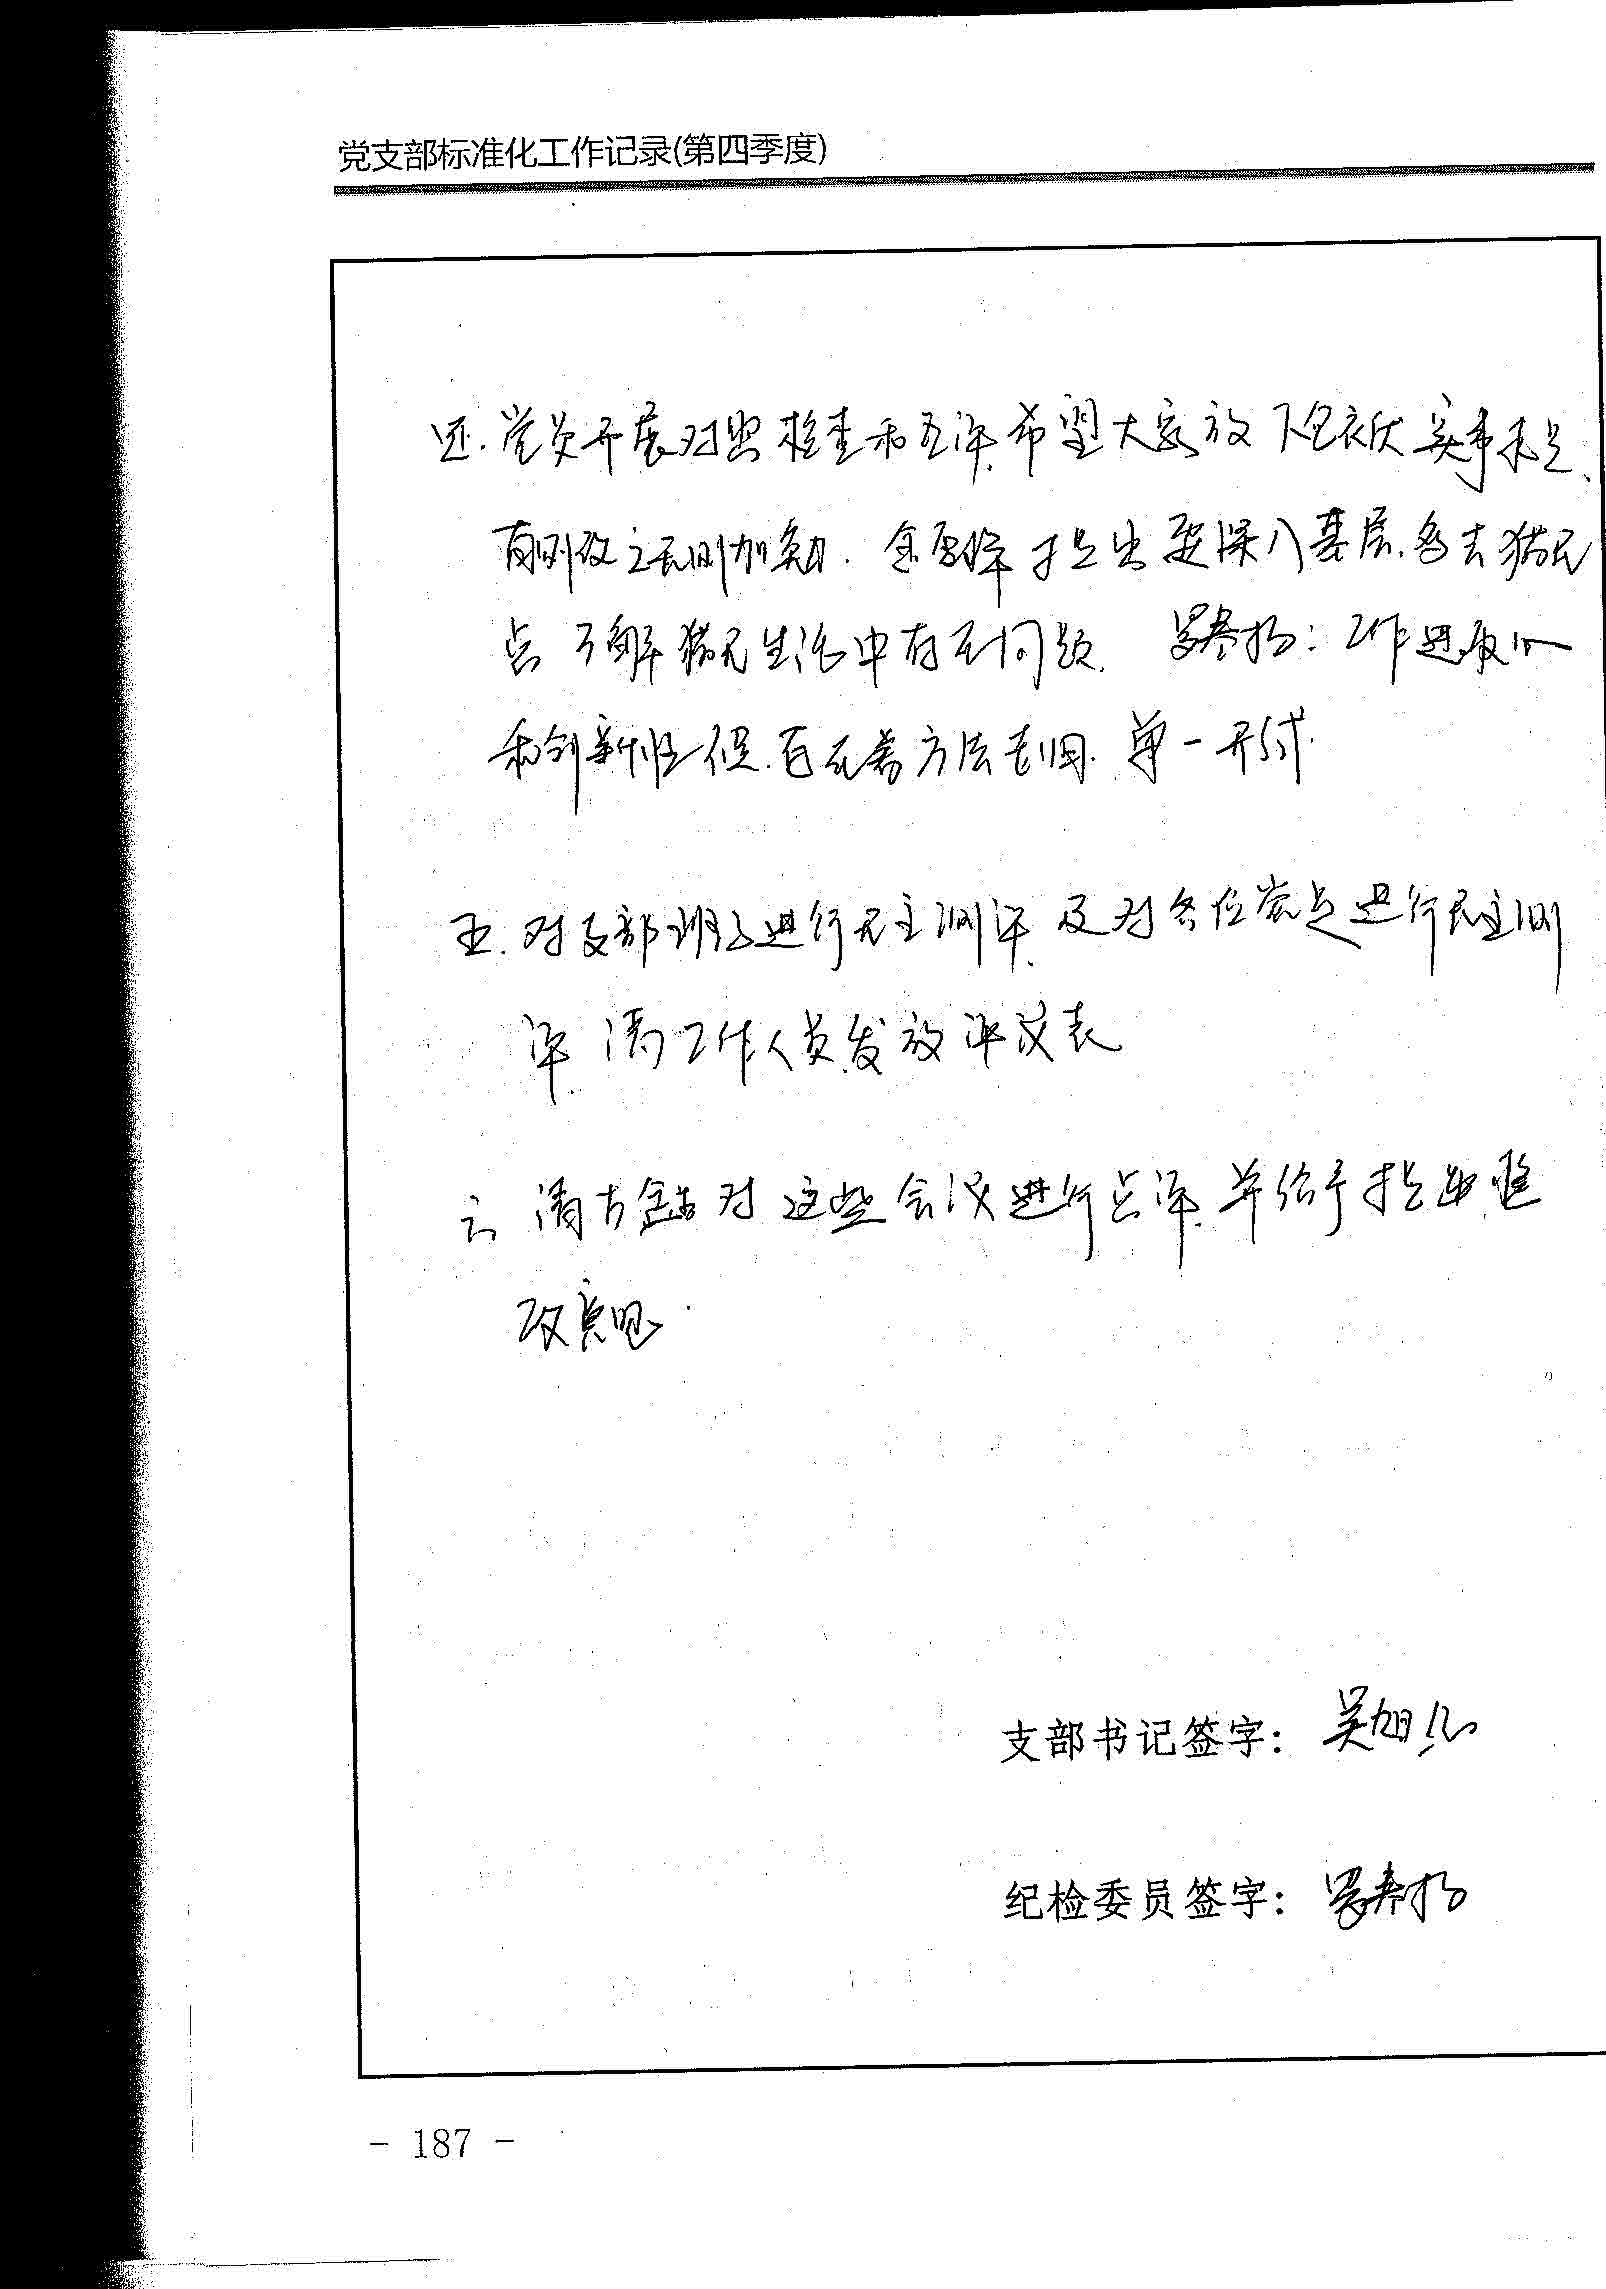 党支部标准化工作记录(第四季度)
四.党员开展对照检查和互评.希望大家放下包袱实事求是、
有则改之无则加勉. 指出要深入基层.多去猎民
点 了解猎民生活中存在问题. 罗春扬:工作进取心
和创新性但.存在着方法老旧.单一形式.
五.对支部班子进行民主测评.及对各位党员进行民主测
评.请工作人员发放评议表
六 请 对这些会议进行点评.并给予指出整
改意见.
支部书记签字:吴旭
纪检委员签字:罗春扬
- 187 -